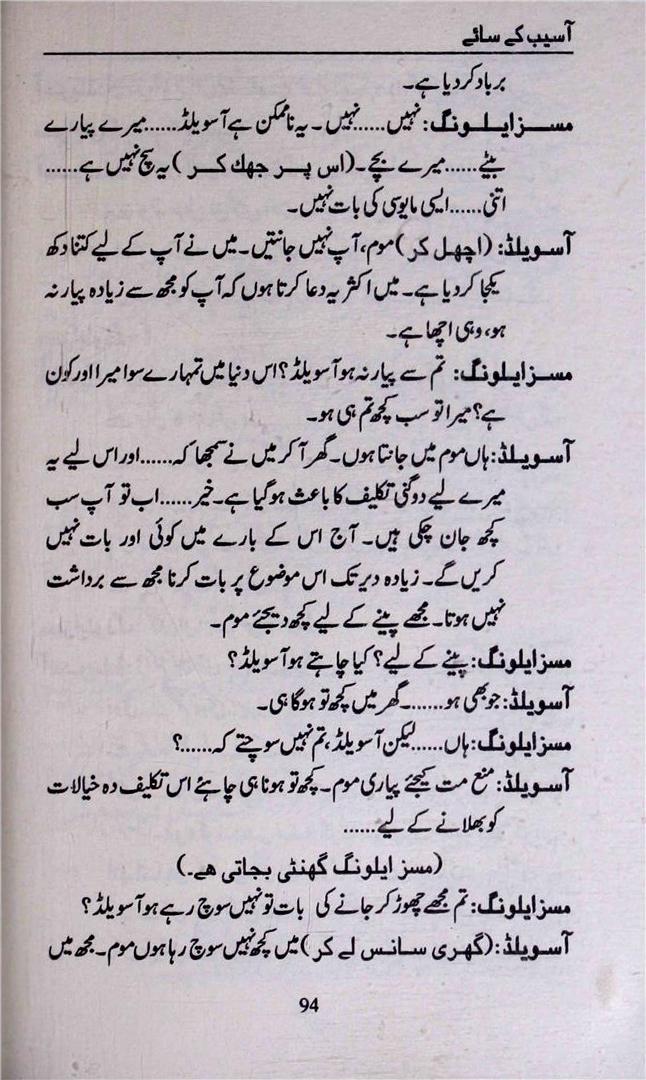 آسیب کے سائے
برباد کردیا ہے۔
مسز ایلونگ: نہیں......نہیں۔ یہ ناممکن ہے آسویلڈ......میرے پیارے
بیٹے......میرے بچے۔ (اس پر جھك کر) یہ سچ نہیں ہے......
اتنی......ایسی مایوسی کی بات نہیں۔
آسویلڈ: (اچھل کر) موم، آپ نہیں جانتیں۔ میں نے آپ کے لیے کتنا دکھ
یکجا کردیا ہے۔ میں اکثر یہ دعا کرتا ہوں کہ آپ کو مجھ سے زیادہ پیار نہ
ہو، وہی اچھا ہے۔
مسز ایلونگ: تم سے پیار نہ ہو آسویلڈ؟ اس دنیا میں تمہارے سوا میرا اور کون
ہے؟ میرا تو سب کچھ تم ہی ہو۔
آسویلڈ: ہاں موم میں جانتا ہوں۔ گھر آ کر میں نے سمجھا کہ......اور اس لیے یہ
میرے لیے دوگنی تکلیف کا باعث ہوگیا ہے۔ خیر......اب تو آپ سب
کچھ جان چکی ہیں۔ آج اس کے بارے میں کوئی اور بات نہیں
کریں گے۔ زیادہ دیر تک اس موضوع پر بات کرنا مجھ سے برداشت
نہیں ہوتا۔ مجھے پینے کے لیے کچھ دیجئے موم۔
مسز ایلونگ: پینے کے لیے؟ کیا چاہتے ہو آسویلڈ؟
آسویلڈ: جو بھی ہو......۔ گھر میں کچھ تو ہوگا ہی۔
مسز ایلونگ: ہاں......لیکن آسویلڈ، تم نہیں سوچتے کہ......؟
آسویلڈ: منع مت کیجئے پیاری موم۔ کچھ تو ہونا ہی چاہئے اس تکلیف دہ خیالات
کو بھلانے کے لیے......
(مسز ایلونگ گھنٹی بجاتی ھے۔)
مسز ایلونگ: تم مجھے چھوڑ کر جانے کی بات تو نہیں سوچ رہے ہو آسویلڈ؟
آسویلڈ: (گھری سانس لے کر) میں کچھ نہیں سوچ رہا ہوں موم۔ مجھ میں
94